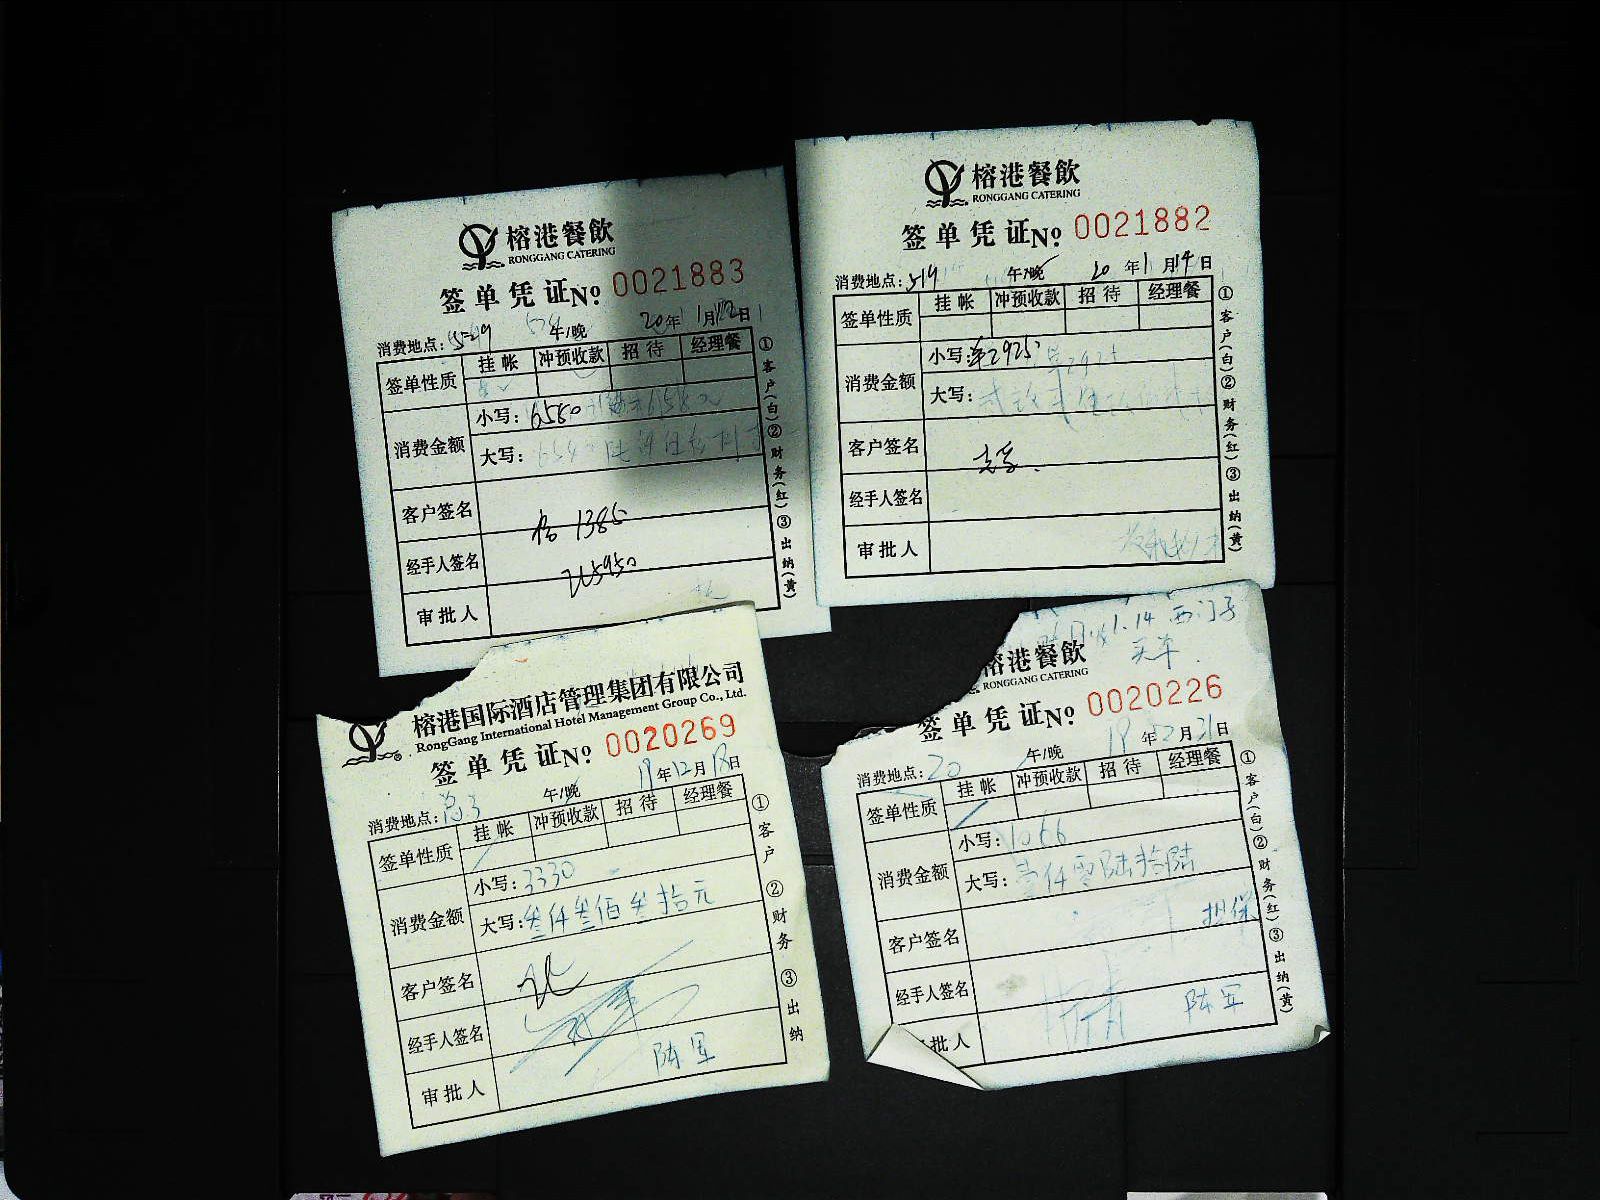 榕港餐飲
RONGGANG CATERING
签单凭证No 0021883
消费地点: 午/晚 20年1月12日
签单性质 挂帐 冲预收款 招待 经理餐
消费金额
小写: 6580
大写:
客户签名 1385
经手人签名
审批人
①客户(白)②财务(红)③出纳(黄)
榕港餐飲
RONGGANG CATERING
签单凭证No 0021882
消费地点: 519 午/晚 20年1月14日
签单性质 挂帐 冲预收款 招待 经理餐
消费金额
小写: 2925
大写:
客户签名
经手人签名
审批人
①客户(白)②财务(红)③出纳(黄)
榕港国际酒店管理集团有限公司
RongGang International Hotel Management Group Co., Ltd.
签单凭证No 0020269
消费地点: 午/晚 19年12月18日
签单性质 挂帐 冲预收款 招待 经理餐
消费金额
小写: 3330
大写: 叁仟叁佰叁拾元
客户签名
经手人签名
陈军
审批人
①客户 ②财务 ③出纳
1.14 西门子
买车
榕港餐飲
RONGGANG CATERING
签单凭证No 0020226
消费地点: 20 午/晚 19年12月31日
签单性质 挂帐 冲预收款 招待 经理餐
消费金额
小写: 1066
大写: 壹仟零陆拾陆
担保
客户签名
经手人签名 陈军
批人
①客户(白)②财务(红)③出纳(黄)